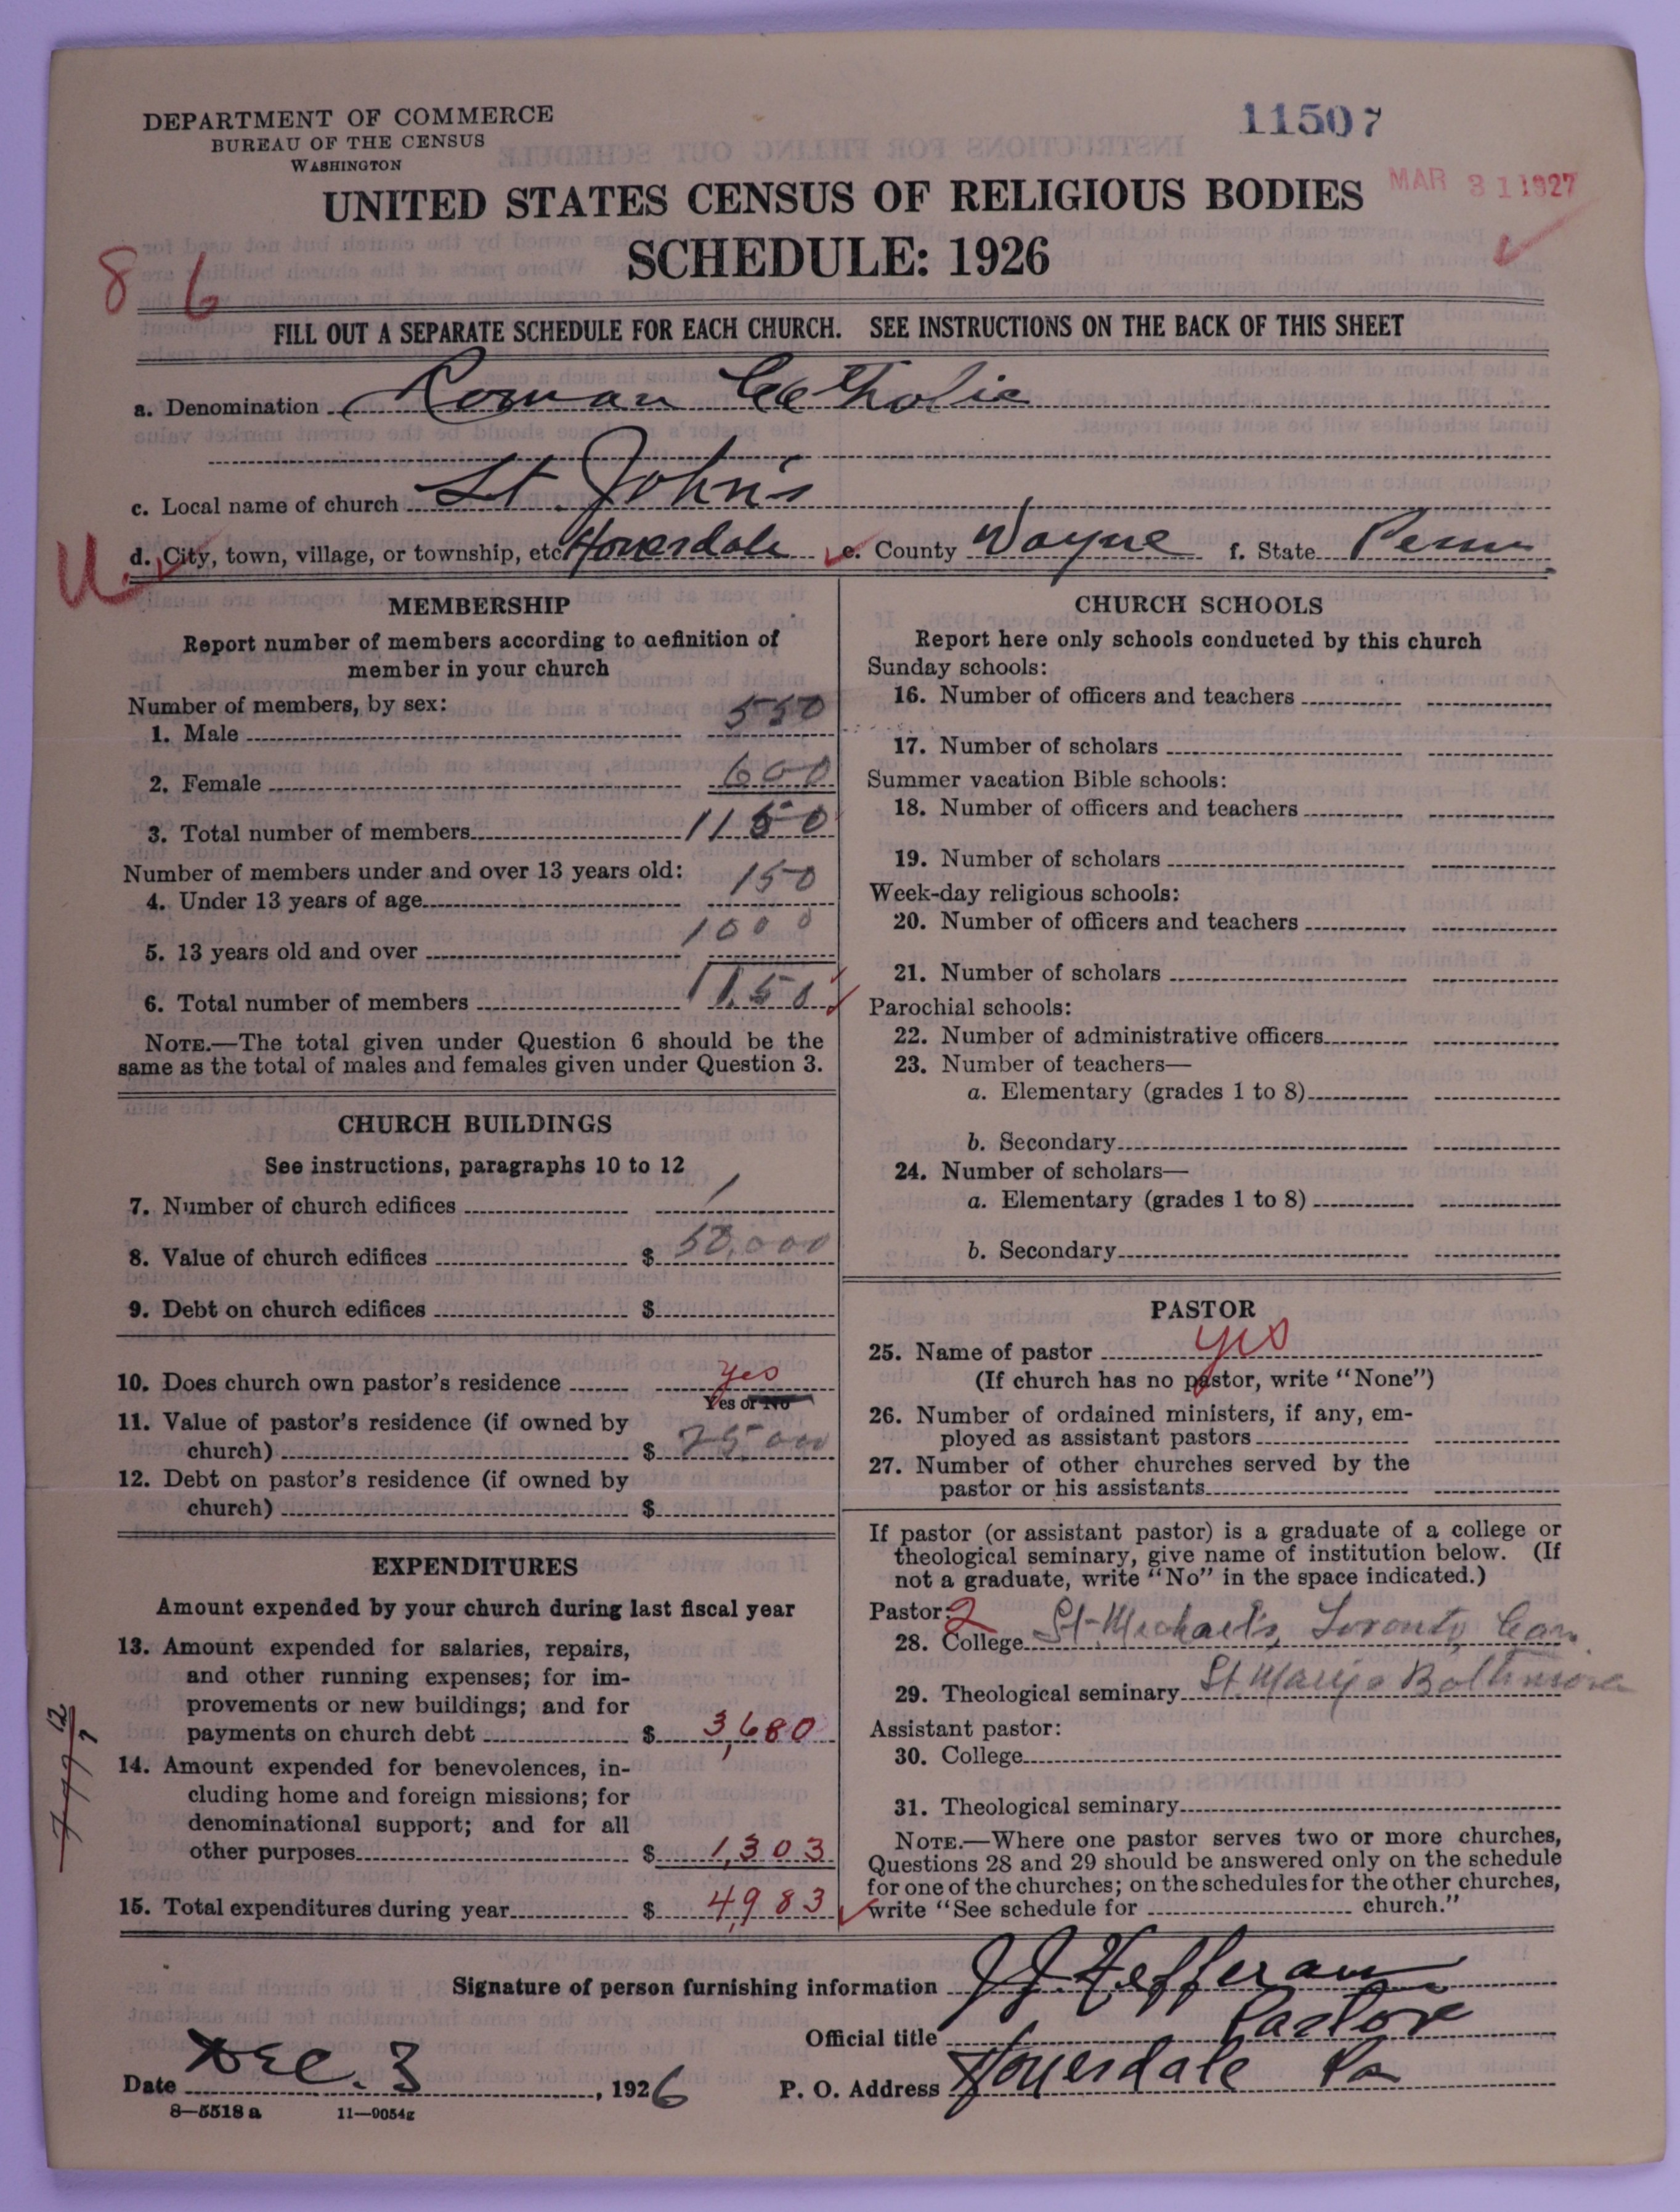 DEPARTMENT OF COMMERCE
BUREAU OF THE CENSUS
WASHINGTON
11507
MAR 31 1927
UNITED STATES CENSUS OF RELIGIOUS BODIES
SCHEDULE: 1926
8 6
FILL OUT A SEPARATE SCHEDULE FOR EACH CHURCH. SEE INSTRUCTIONS ON THE BACK OF THIS SHEET
a. Denomination Roman Catholic
c. Local name of church St. John's
U d. City, town, village, or township, etc. Honesdale e. County Wayne f. State Penn
MEMBERSHIP
Report number of members according to definition of
member in your church
Number of members, by sex:
1. Male 550
2. Female 600
3. Total number of members 1150
Number of members under and over 13 years old:
4. Under 13 years of age 150
5. 13 years old and over 1000
6. Total number of members 1150
NOTE.—The total given under Question 6 should be the
same as the total of males and females given under Question 3.
CHURCH BUILDINGS
See instructions, paragraphs 10 to 12
7. Number of church edifices 1
8. Value of church edifices $ 50,000
9. Debt on church edifices $
10. Does church own pastor's residence yes
Yes or No
11. Value of pastor's residence (if owned by
church) $ 25000
12. Debt on pastor's residence (if owned by
church) $
EXPENDITURES
Amount expended by your church during last fiscal year
13. Amount expended for salaries, repairs,
and other running expenses; for im-
provements or new buildings; and for
payments on church debt $ 3,680
14. Amount expended for benevolences, in-
cluding home and foreign missions; for
denominational support; and for all
other purposes $ 1,303
15. Total expenditures during year $ 4,983
CHURCH SCHOOLS
Report here only schools conducted by this church
Sunday schools:
16. Number of officers and teachers
17. Number of scholars
Summer vacation Bible schools:
18. Number of officers and teachers
19. Number of scholars
Week-day religious schools:
20. Number of officers and teachers
21. Number of scholars
Parochial schools:
22. Number of administrative officers
23. Number of teachers—
a. Elementary (grades 1 to 8)
b. Secondary
24. Number of scholars—
a. Elementary (grades 1 to 8)
b. Secondary
PASTOR
25. Name of pastor yes
(If church has no pastor, write "None")
26. Number of ordained ministers, if any, em-
ployed as assistant pastors
27. Number of other churches served by the
pastor or his assistants
If pastor (or assistant pastor) is a graduate of a college or
theological seminary, give name of institution below. (If
not a graduate, write "No" in the space indicated.)
Pastor: 2
28. College St-Michael's, Toronto, Can
29. Theological seminary St. Mary's Baltimore
Assistant pastor:
30. College
31. Theological seminary
NOTE.—Where one pastor serves two or more churches,
Questions 28 and 29 should be answered only on the schedule
for one of the churches; on the schedules for the other churches,
write "See schedule for church."
Signature of person furnishing information J J Hefferan
Official title Pastor
Date Dec. 3, 1926 P. O. Address Honesdale Pa
8—5518 a 11—9054g